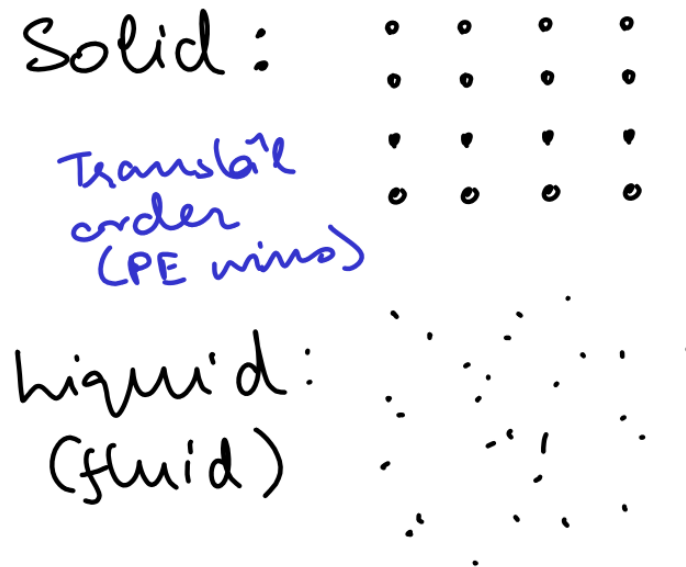 Solid :
Transla'l
order
(PE wins)
Liquid :
(fluid)